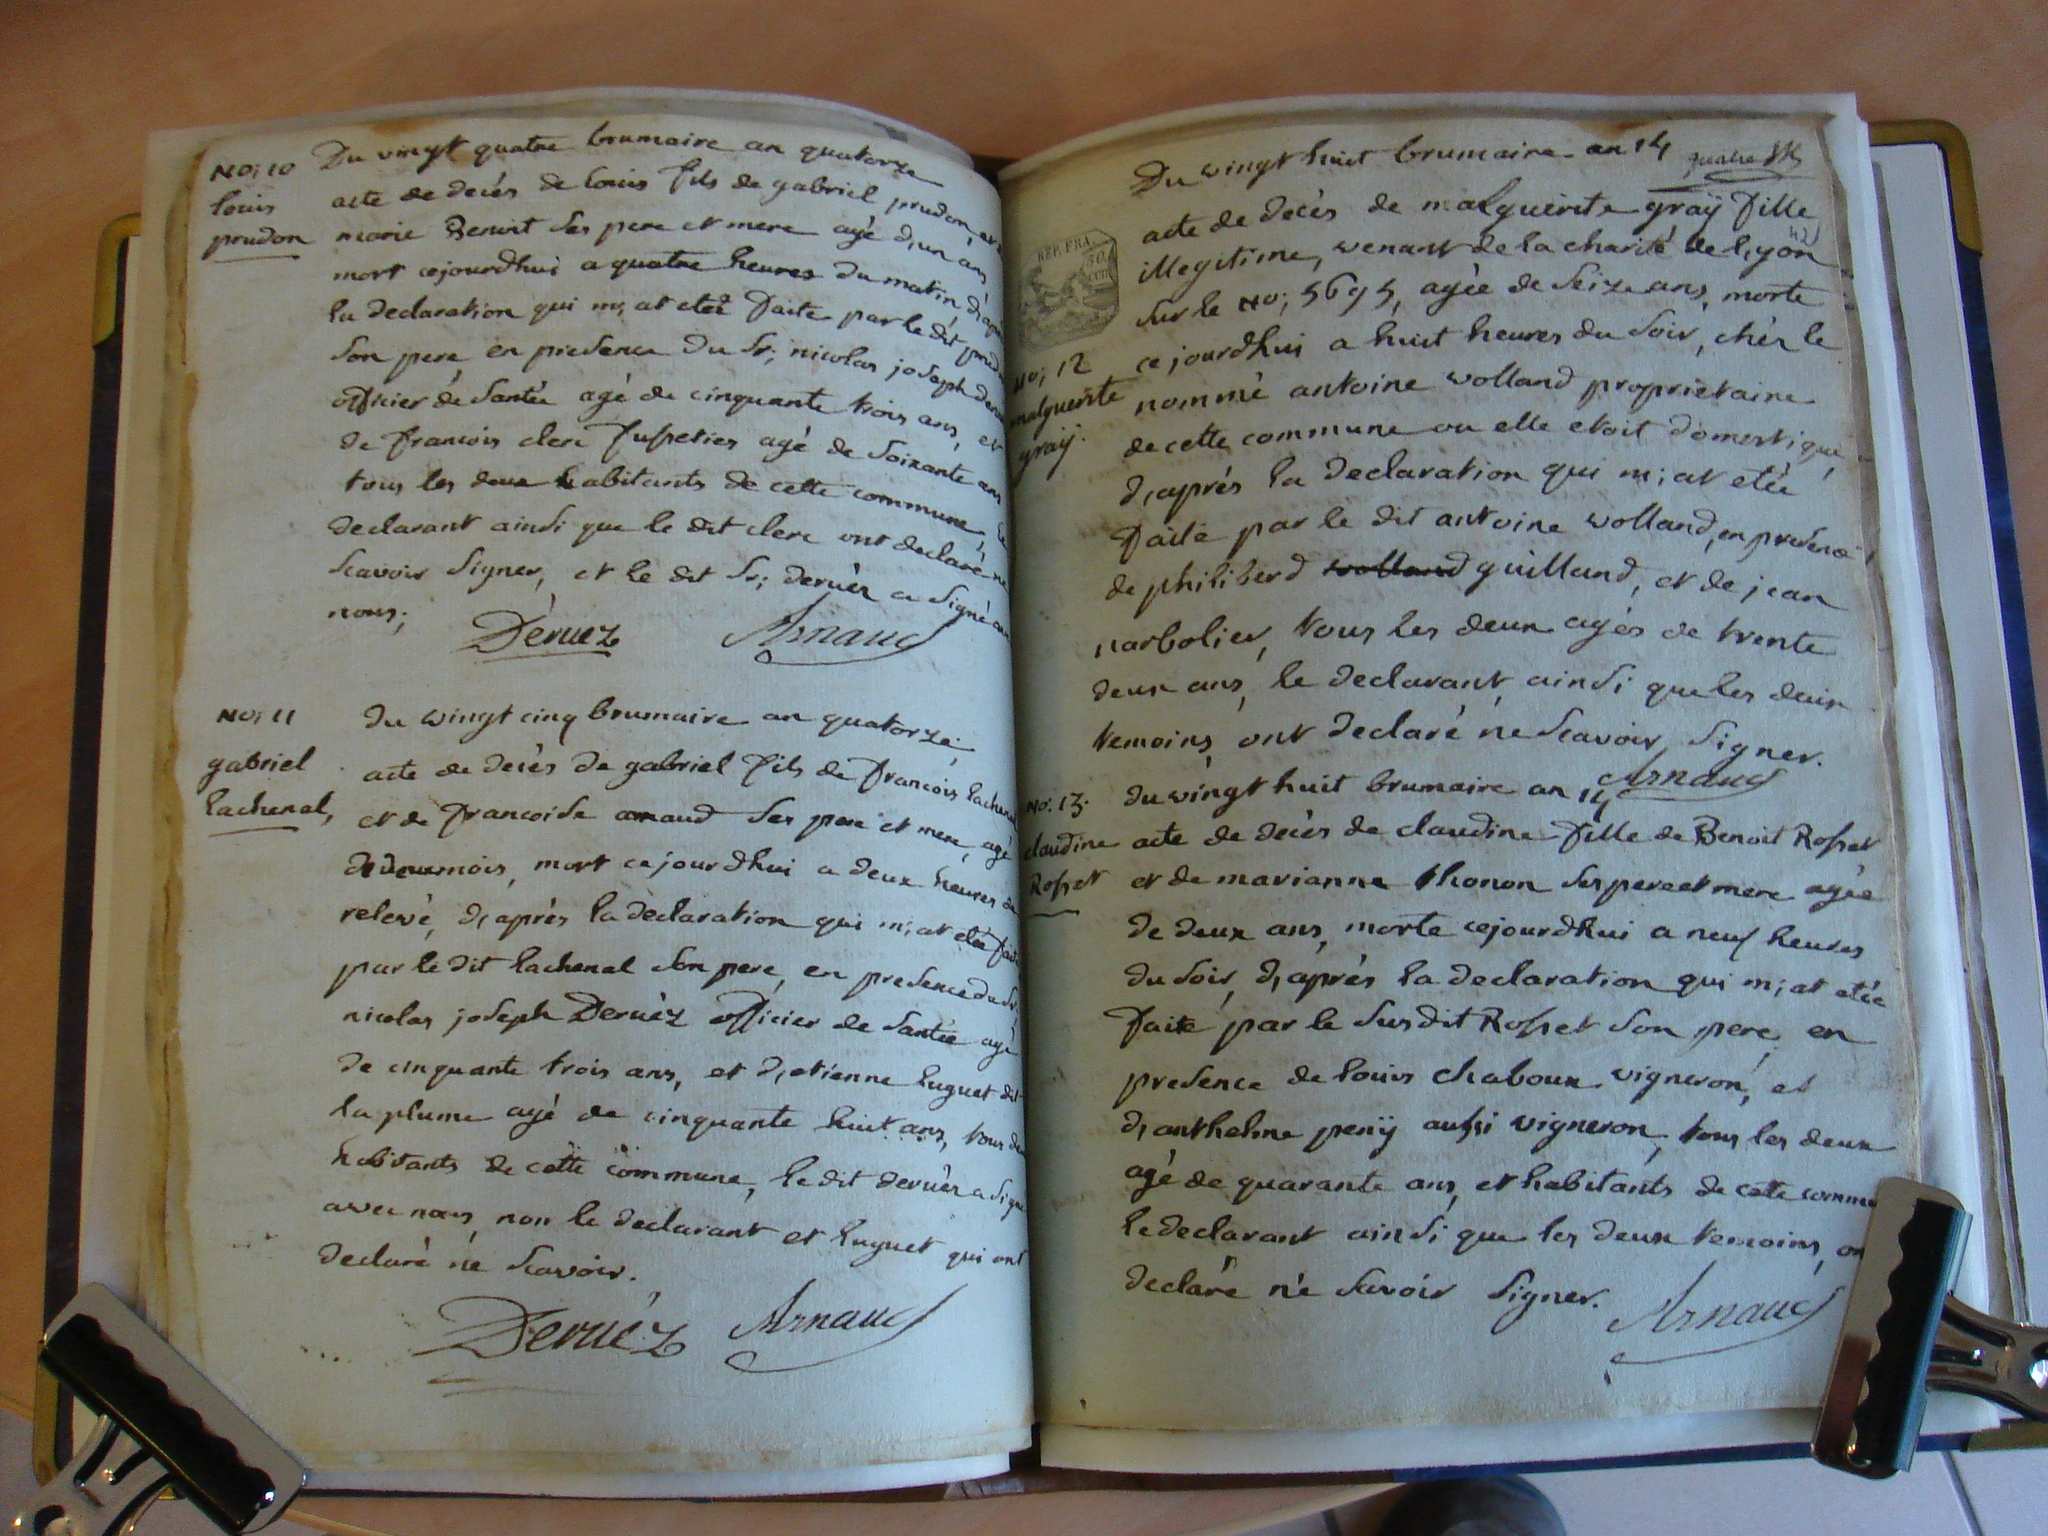 No; 10
louis
prudon
Du vingt quatre brumaire an quatorze
acte de decès de louis fils de gabriel prudon et
marie Benoit ses pere et mere agé d,un an,
mort cejourdhui a quatre heures du matin, d,après
la declaration qui m,at eteé faite par le dit
son pere, en presence du Sr; nicolas joseph
officier de Santée agé de cinquante trois ans, et
de francois clerc agé de soixante ans
tous les deux habitants de cette commune, le
declarant ainsi que le dit clerc ont declaré ne
scavoir signer, et le dit Sr; deruèz a signé
nous;
Déruez Arnaud
No; 11
gabriel
lachenal,
du vingt cinq brumaire an quatorze,
acte de decès de gabriel fils de francois
et de francoise arnaud ses pere et mere, agé
de deuxmois, mort cejourdhui a deux heures de
relevé, d,après la declaration qui m,at eteé
par le dit lachenal son pere, en presence du Sr
nicolas joseph Deruèz officier de santée agé
de cinquante trois ans, et d,etienne huguet dit
la plume agé de cinquante huit ans, tous
habitants de cette commune, le dit deruèz a signé
avec nous non le declarant et huguet qui ont
declaré né scavoir.
Deruéz Arnaud
Du vingt huit brumaire an 14
42
REP. FRA.
50.
No; 12
malguerite
graÿ.
acte de decès de malguerite graÿ fille
illegitime, venant de la charité de lyon
sur le No; 5695, agée de seize ans, morte
ce jourdhui a huit heures du soir, chéz le
nommé antoine wolland proprietaire
de cette commune ou elle etoit domestique,
d,après la declaration qui m;at eteé
faite par le dit antoine wolland, en presence
de philiberd wolland guilland, et de jean
narbolier, tous les deux agés de trente
deux ans, le declarant ainsi que les deux
temoins ont declaré né scavoir signer.
Arnaud
No. 13.
claudine
Rosset
du vingt huit brumaire an 14
acte de decès de claudine fille de Benoit Rosset
et de marianne thonon ses pere et mere agée
de deux ans, morte cejourdhui a neuf heures
du soir, d,après la declaration qui m;at eteé
faite par le susdit Rosset son pere, en
presence de louis chaboux vigneron, et
d,anthelme penÿ aussi vigneron, tous les deux
agé de quarante ans, et habitants de cette
le declarant ainsi que les deux temoins,
declaré né savoir signer.
Arnaud